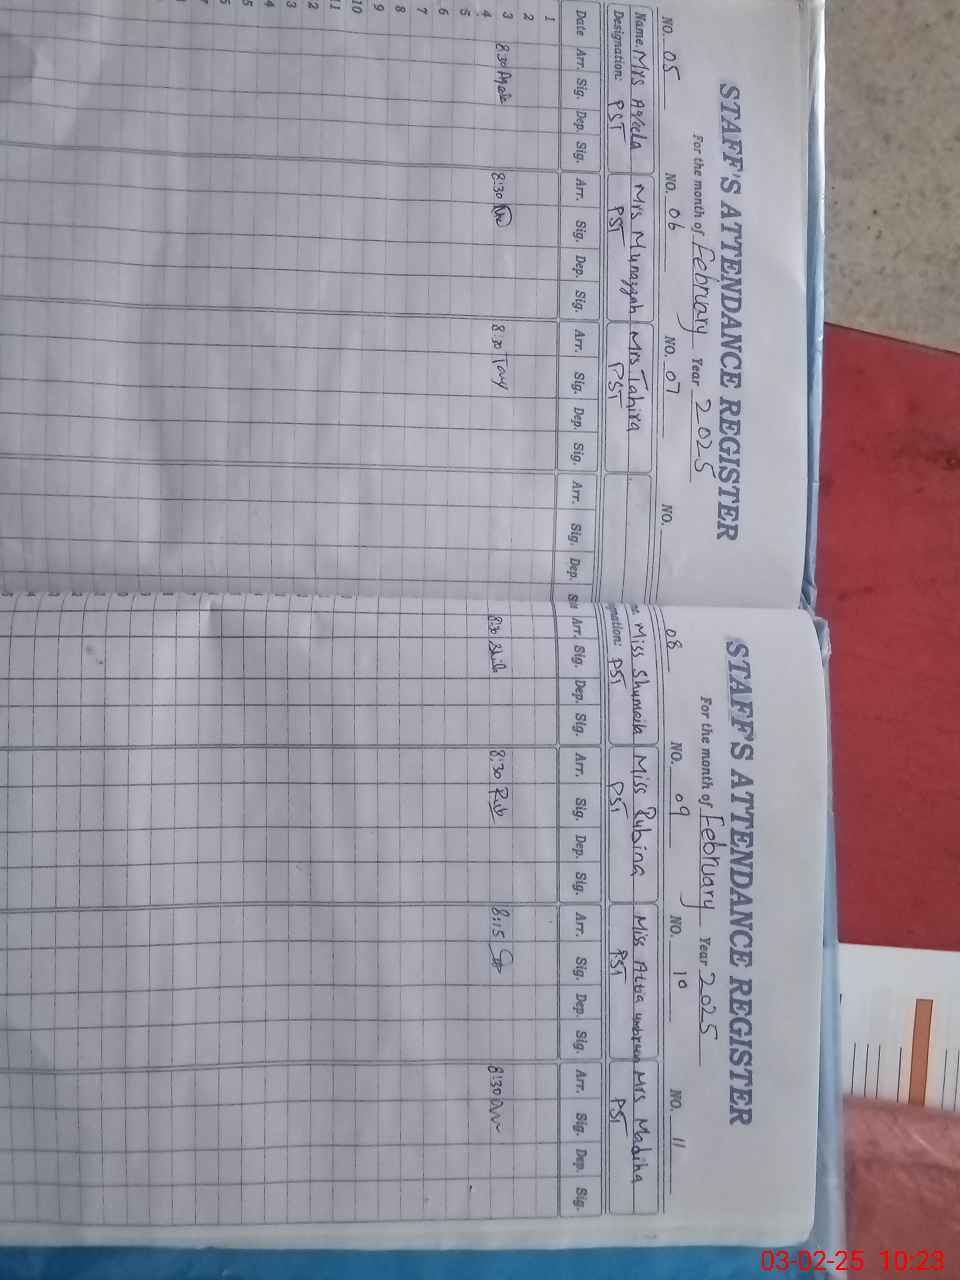 STAFF'S ATTENDANCE REGISTER
For the month of February Year 2025
NO. 05 NO. 06 NO. 07 NO.
Name. Mrs Aqeela Mrs Munazzah Mrs Tahira
Designation: PST PST PST
Date Arr. Sig. Dep. Sig. Arr. Sig. Dep. Sig. Arr. Sig. Dep. Sig. Arr. Sig. Dep. Sig
1
2
3 8:30 8:30 8:30
4
5
6
7
8
9
10
11
STAFF'S ATTENDANCE REGISTER
For the month of February Year 2025
08 NO. 09 NO. 10 NO. 11
Miss Shumaila Miss Rubina Miss Attia Mrs Madiha
PST PST PST PST
Arr. Sig. Dep. Sig. Arr. Sig. Dep. Sig. Arr. Sig. Dep. Sig. Arr. Sig. Dep. Sig.
8:30 8:30 Rub 8:15 8:30
03-02-25 10:23